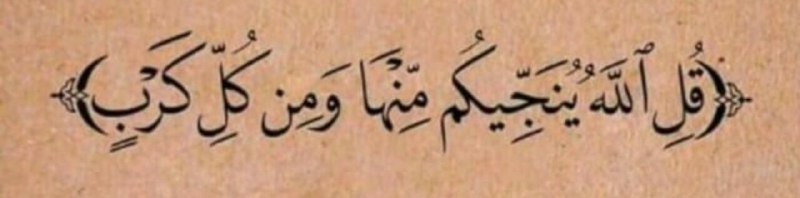 ﴿قُلِ ٱللَّهُ يُنَجِّيكُم مِّنْهَا وَمِن كُلِّ كَرْبٍ﴾